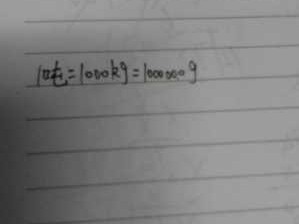 1吨=1000kg=1000000g